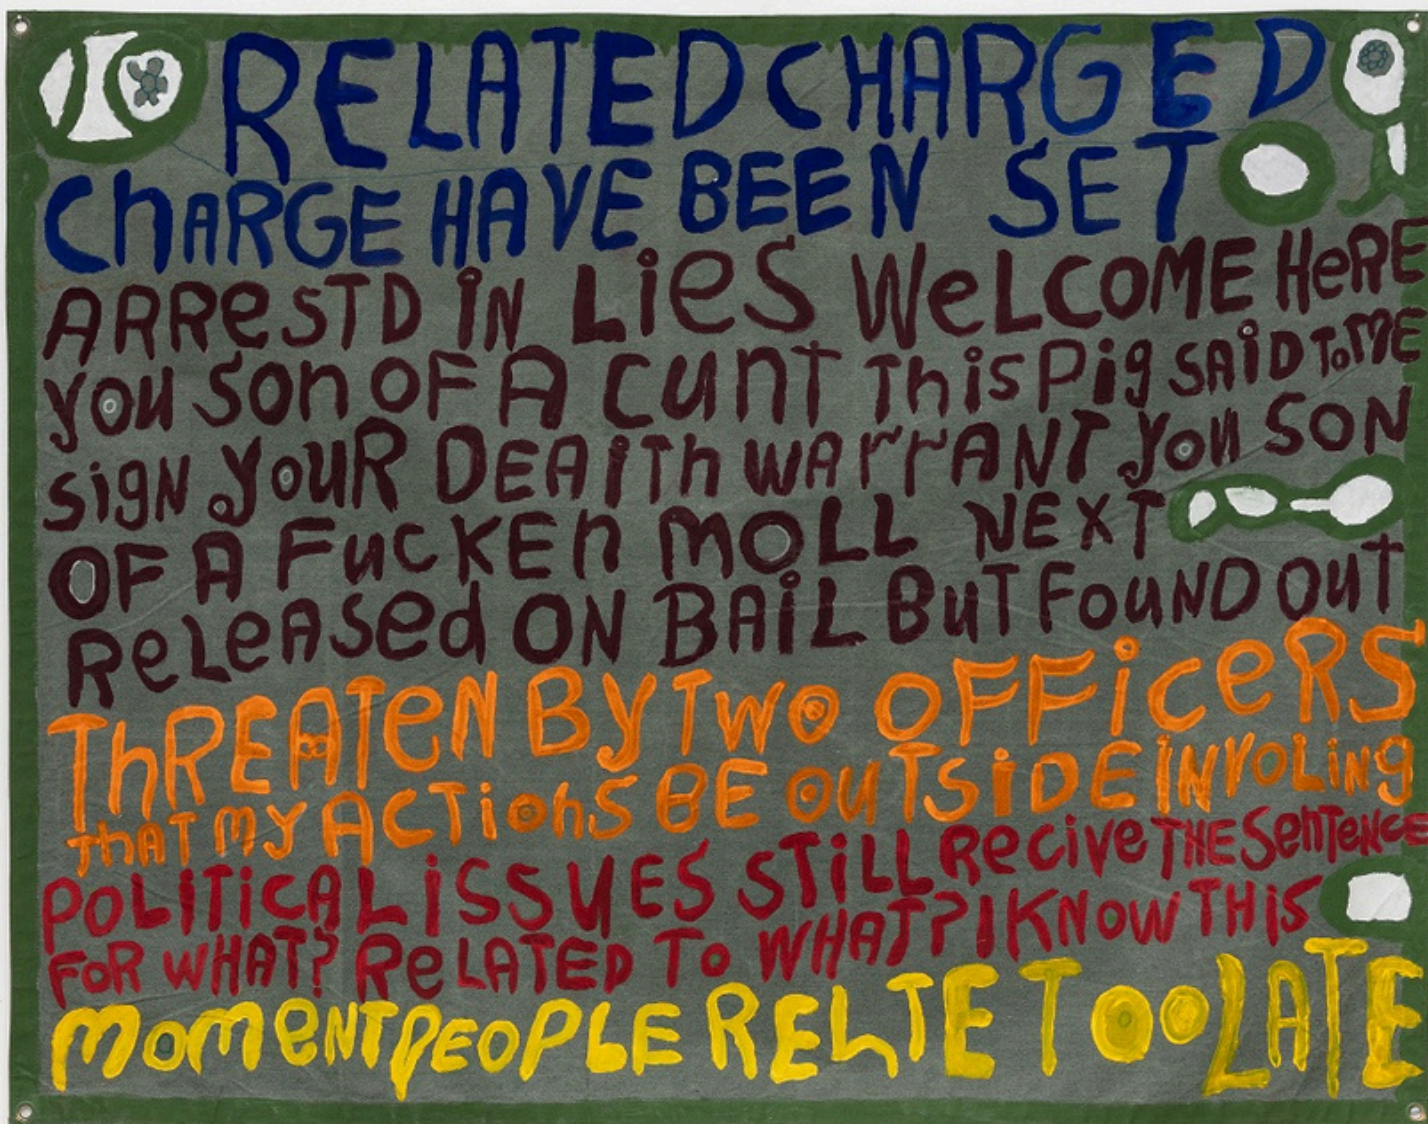 RELATED CHARGED
ChARGE HAVE BEEN SET
ARReSTD iN LieS WeLCOME HeRE
you Son OF A Cunt This Pig SAiD To ME
SigN youR DEAiTh WArrANT you SON
OF A FucKEn MOLL NEXT
ReLeASed ON BAiL BuT FOuND OuT
ThREATeN By TWo OFFiceRS
thAT My ACTiohS BE OuTSiDE INVOLiNg
POLiTiCAL iSSUES STiLL Recive THE SenTeNCE
FOR WHAT? ReLATED To WHAT? I KNOW THiS
MomeNT PEOPLE RELTE TOO LATE